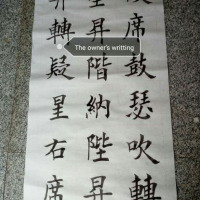 席鼓瑟吹轉
昇階納陛昇
轉疑星右席
The owner's writting